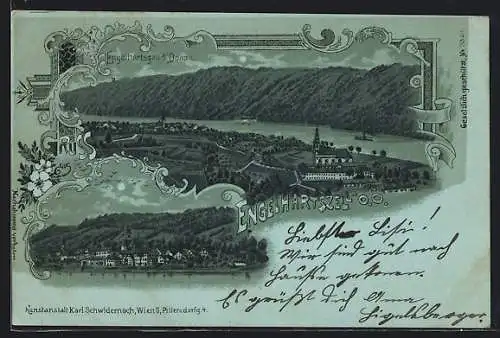 Engelhartszell a/Donau.
Gesetzlich geschützt.
GRUSS
aus
ENGELHARTSZELL O.Ö.
Liebste Lisi!
Wir sind gut nach
Hause gekomen.
Es grüßt dich Anna
Kunstanstalt Karl Schwidernoch, Wien II, Pillersdorfg 4.